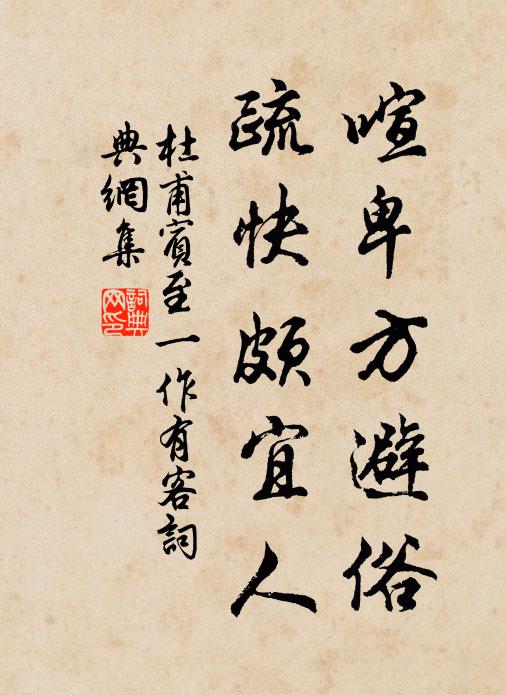 喧卑方避俗
疏快頗宜人
杜甫賓至一作有客詞
典網集
詞典網印